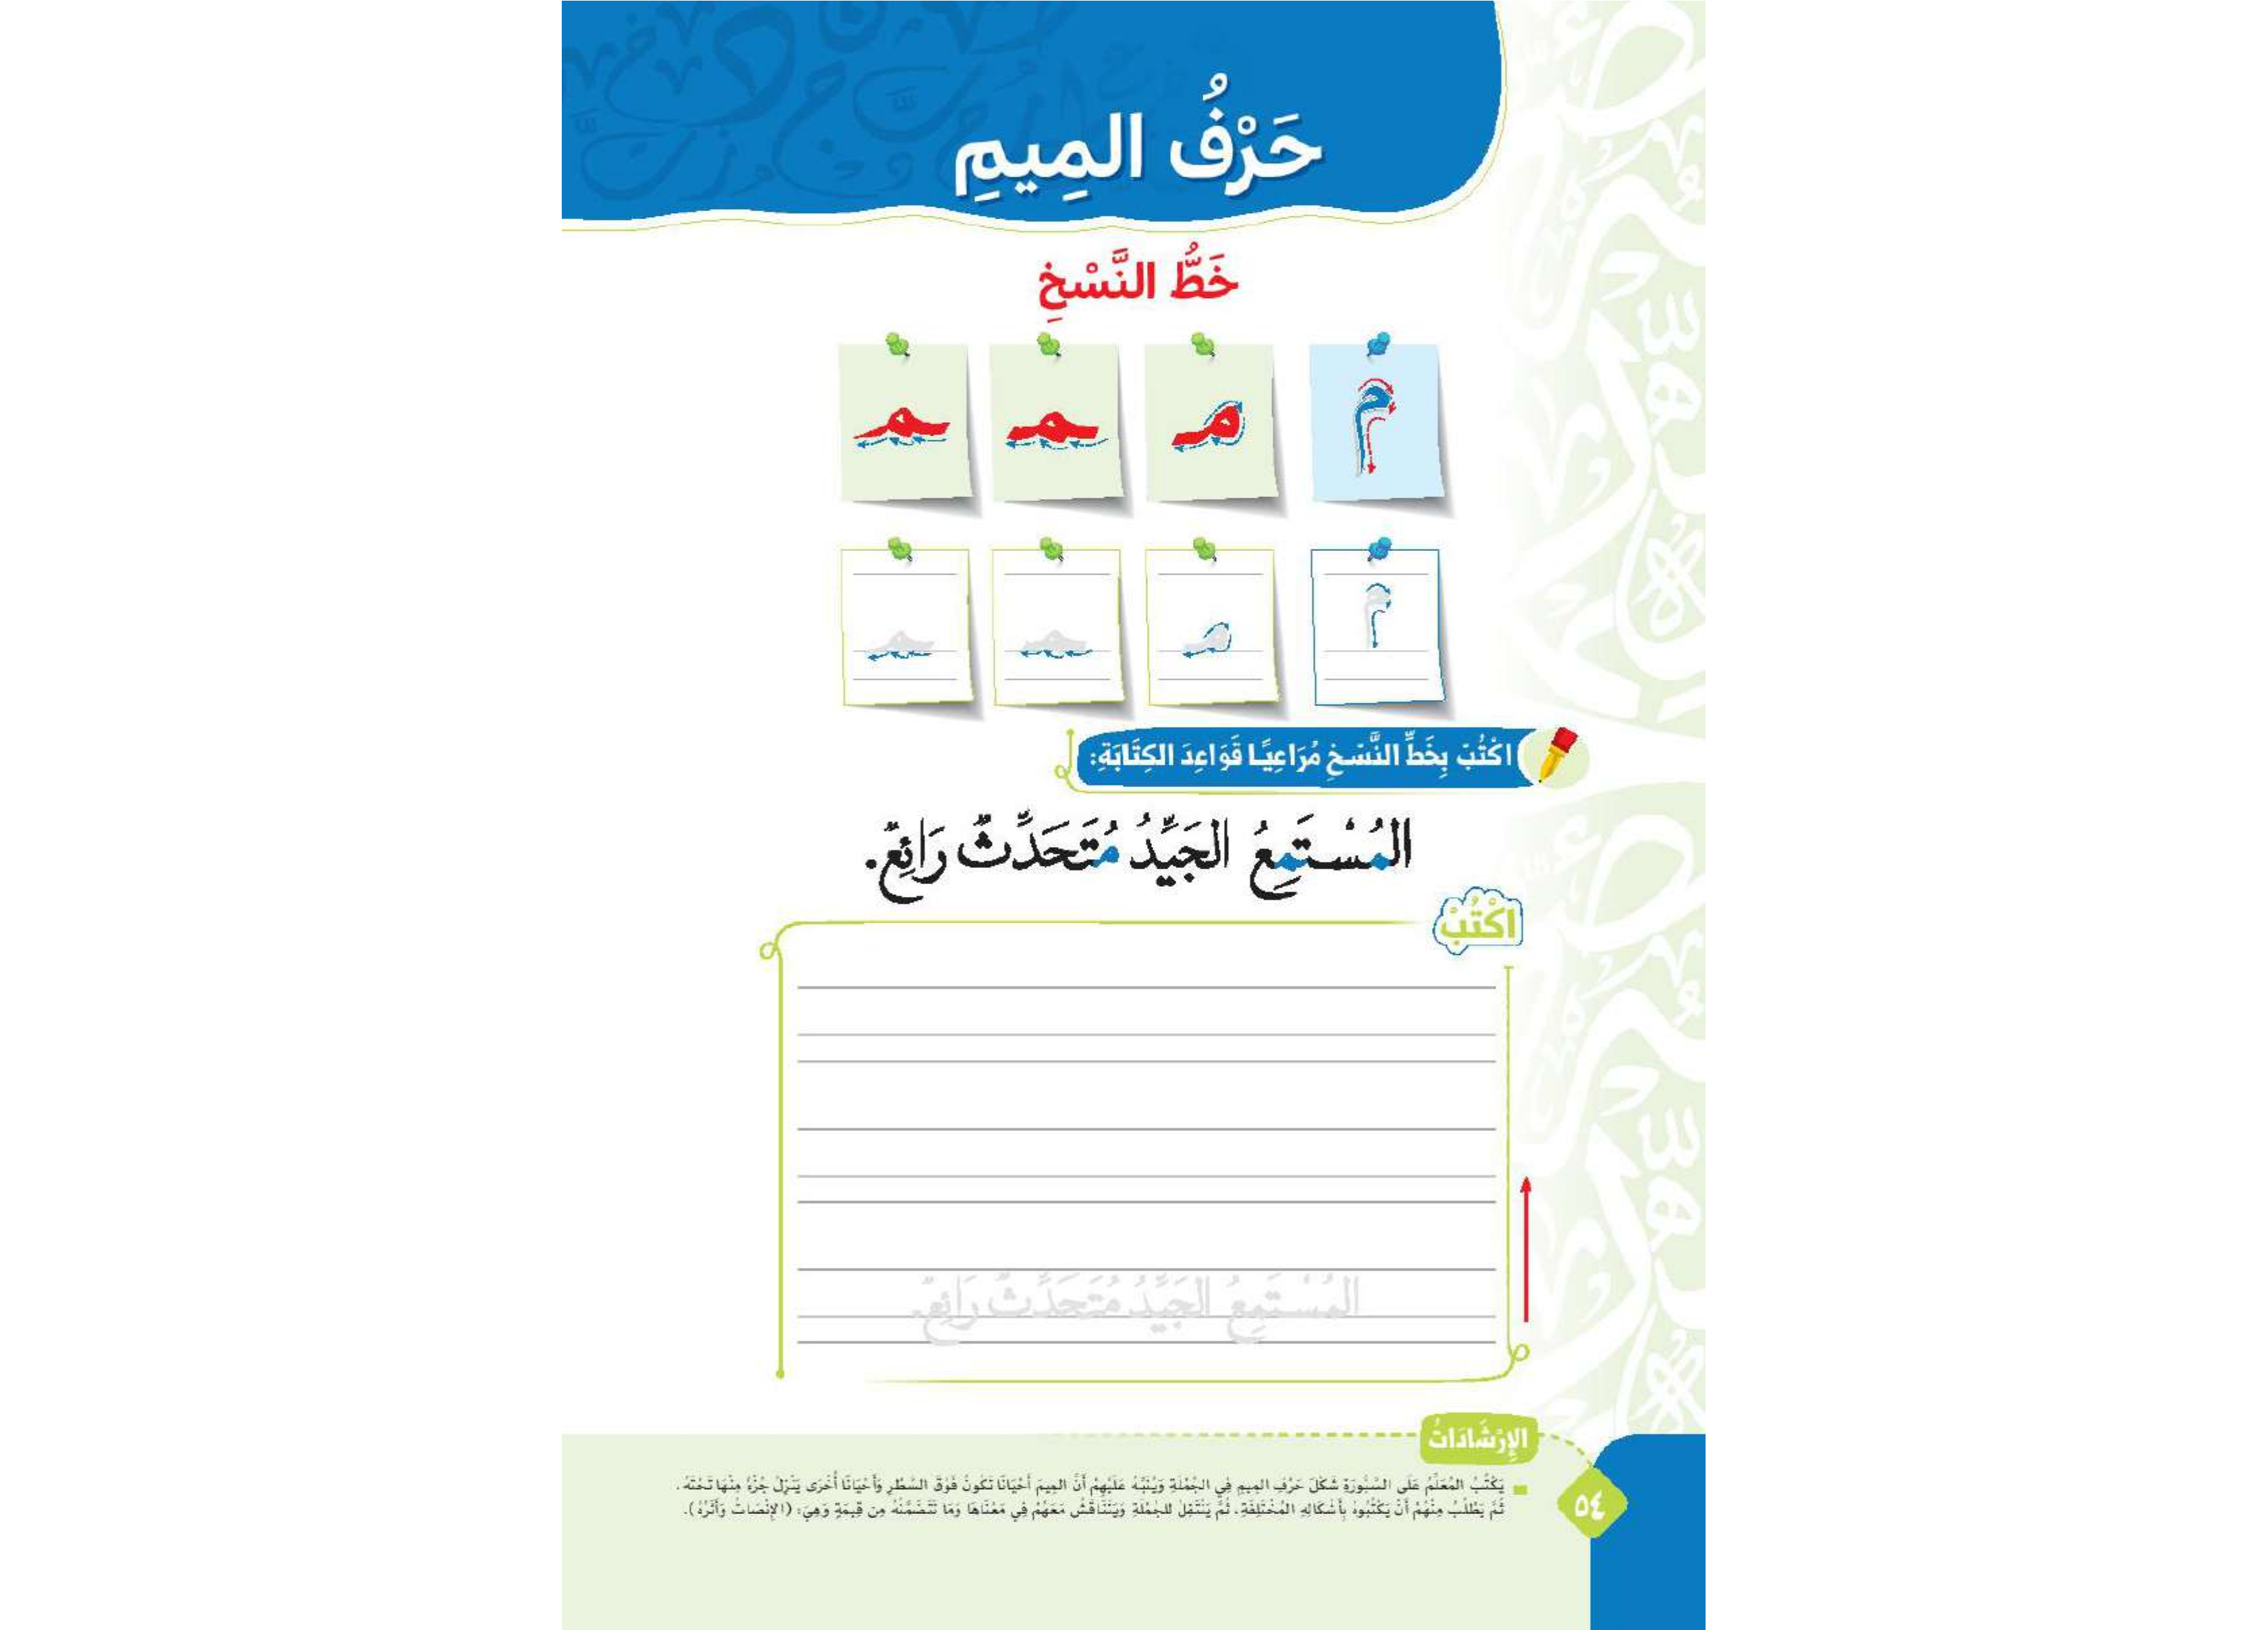 حَرْفُ المِيمِ
خَطُّ النَّسْخِ
م مـ ـمـ ـمـ
م مـ ـمـ ـمـ
اكْتُبْ بِخَطِّ النَّسْخِ مُرَاعِيًا قَوَاعِدَ الكِتَابَةِ:
المُسْتَمِعُ الجَيِّدُ مُتَحَدِّثٌ رَائِعٌ.
اكْتُبْ
المُسْتَمِعُ الجَيِّدُ مُتَحَدِّثٌ رَائِعٌ.
الإِرْشَادَاتُ
يَكْتُبُ المُعَلِّمُ عَلَى السَّبُّورَةِ شَكْلَ حَرْفِ المِيمِ فِي الجُمْلَةِ وَيُنَبِّهُ عَلَيْهِمْ أَنَّ المِيمَ أَحْيَانًا تَكُونُ فَوْقَ السَّطْرِ وَأَحْيَانًا أُخْرَى يَنْزِلُ جُزْءٌ مِنْهَا تَحْتَهُ.
ثُمَّ يَطْلُبُ مِنْهُمْ أَنْ يَكْتُبُوهُ بِأَشْكَالِهِ المُخْتَلِفَةِ. ثُمَّ يَنْتَقِلُ للجُمْلَةِ وَيَتَنَاقَشُ مَعَهُمْ فِي مَعْنَاهَا وَمَا تَتَضَمَّنُهُ مِن قِيمَةٍ وَهِيَ: (الإِنْصَاتُ وَأَثَرُهُ).
٥٤